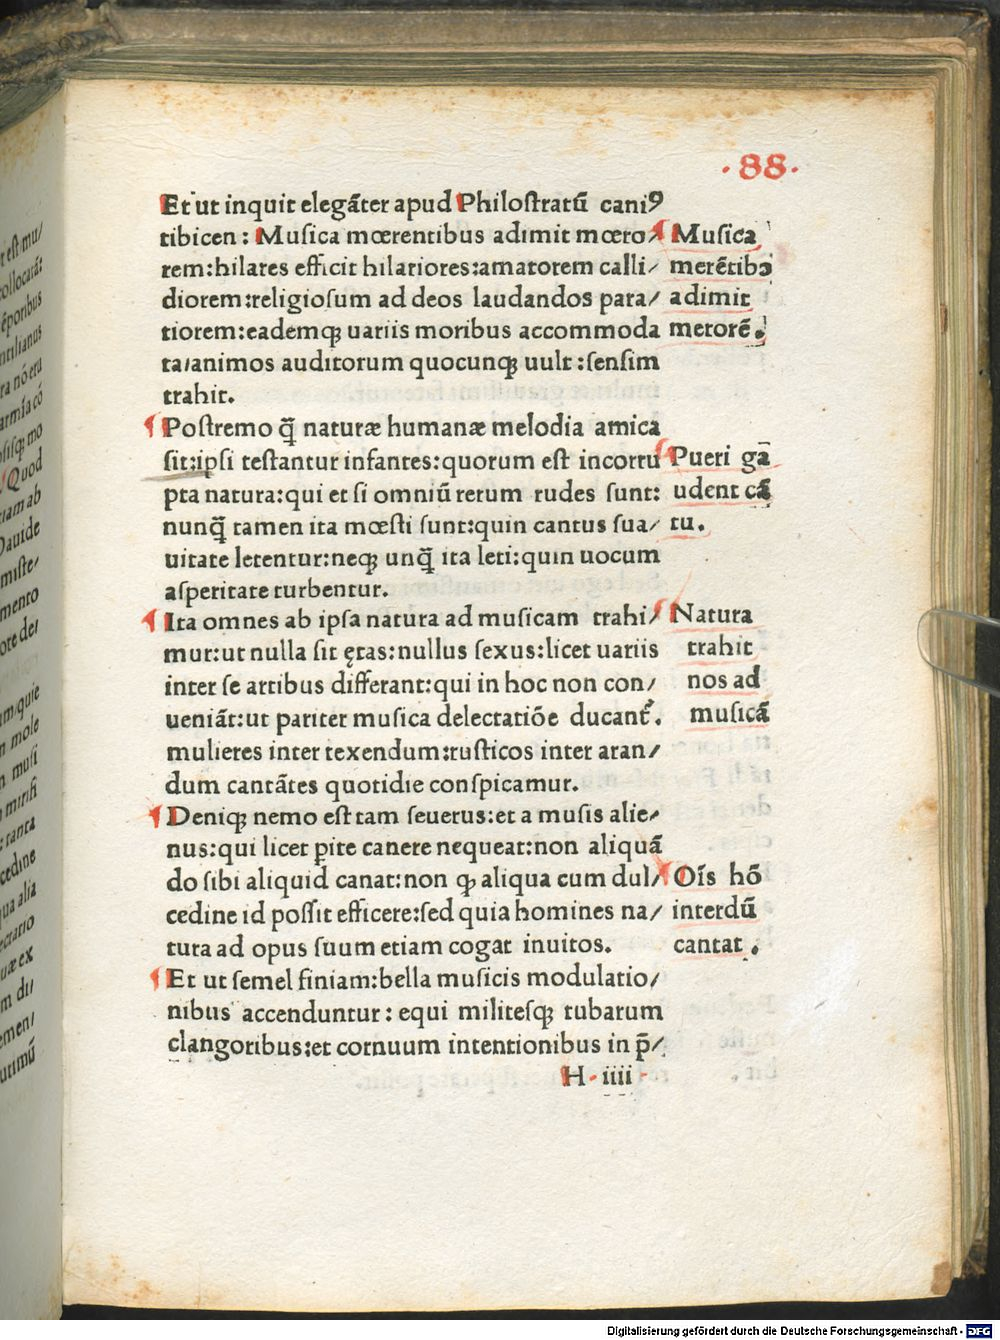 ·88·
Et ut inquit elegāter apud Philoſtratū caniꝰ
tibicen: Muſica mœrentibus adimit mœro/
rem:hilares efficit hilariores:amatorem calli/
diorem:religioſum ad deos laudandos para/
tiorem:eademqꝫ uariis moribus accommoda
ta:animos auditorum quocunqꝫ uult:ſenſim
trahit.
Muſica
merētibꝰ
adimit
metorē.
¶Poſtremo q̄ naturæ humanæ melodia amica
ſit:ipſi teſtantur infantes:quorum eſt incorru
pta natura:qui et ſi omniū rerum rudes sunt:
nunq̄ tamen ita mœſti ſunt:quin cantus ſua/
uitate letentur:neqꝫ unq̄ ita leti:quin uocum
aſperitate turbentur.
Pueri gā
udent cā
tu.
¶Ita omnes ab ipſa natura ad muſicam trahi/
mur:ut nulla ſit ętas:nullus ſexus:licet uariis
inter ſe artibus differant:qui in hoc non con/
ueniāt:ut pariter muſica delectatiōe ducant᷑.
mulieres inter texendum:ruſticos inter aran/
dum cantātes quotidie conſpicamur.
Natura
trahit
nos ad
muſicā
¶Deniqꝫ nemo eſt tam ſeuerus:et a muſis alie/
nus:qui licet ꝑite canere nequeat:non aliquā
do ſibi aliquid canat:non qꝫ aliqua eum dul/
cedine id poſſit efficere:ſed quia homines na/
tura ad opus ſuum etiam cogat inuitos.
Oīs hō
interdū
cantat.
¶Et ut ſemel finiam:bella muſicis modulatio/
nibus accenduntur: equi militeſqꝫ tubarum
clangoribus:et cornuum intentionibus in p̄/
H·iiii·
eſt mu/
ollocarāt
ēporibus
ntilianus
ra nō eru
armīa cō
Quod
iam ab
Dauide
miſte/
mento
ore de/
mole
muſi
mirifi
tanta
cedine
ua alia
ctatio
uæ ex
m di/
emen/
Digitalisierung gefördert durch die Deutsche Forschungsgemeinschaft - DFG